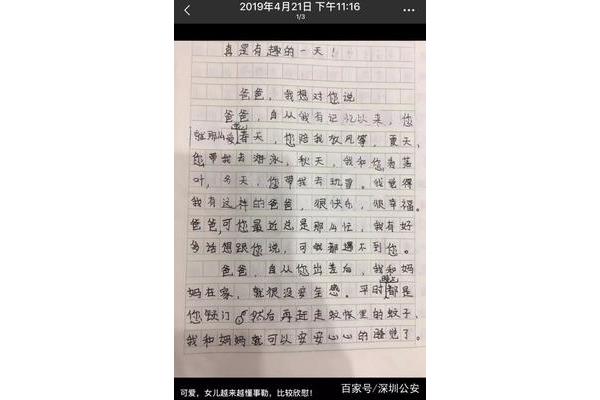 2019年4月21日 下午11:16
1/3
真是有趣的一天！
爸爸，我想对您说
爸爸，自从我有记忆以来，您
就那么爱我春天，您陪我放风筝，夏天，
您带我去游泳，秋天，我和您看落
叶，冬天，您带我去玩雪。我觉得
我有这样的爸爸，很快乐，很幸福。
爸爸，可您最近总是那么忙，我有好
多话想跟您说，可我都遇不到您。
爸爸，自从您出差后，我和妈
妈在家，就很没安全感。平时晚上都是
您锁门，然后再赶走蚊帐里的蚊子，
我和妈妈就可以安安心心的睡觉了。
可爱，女儿越来越懂事勒，比较欣慰！
百家号/深圳公安